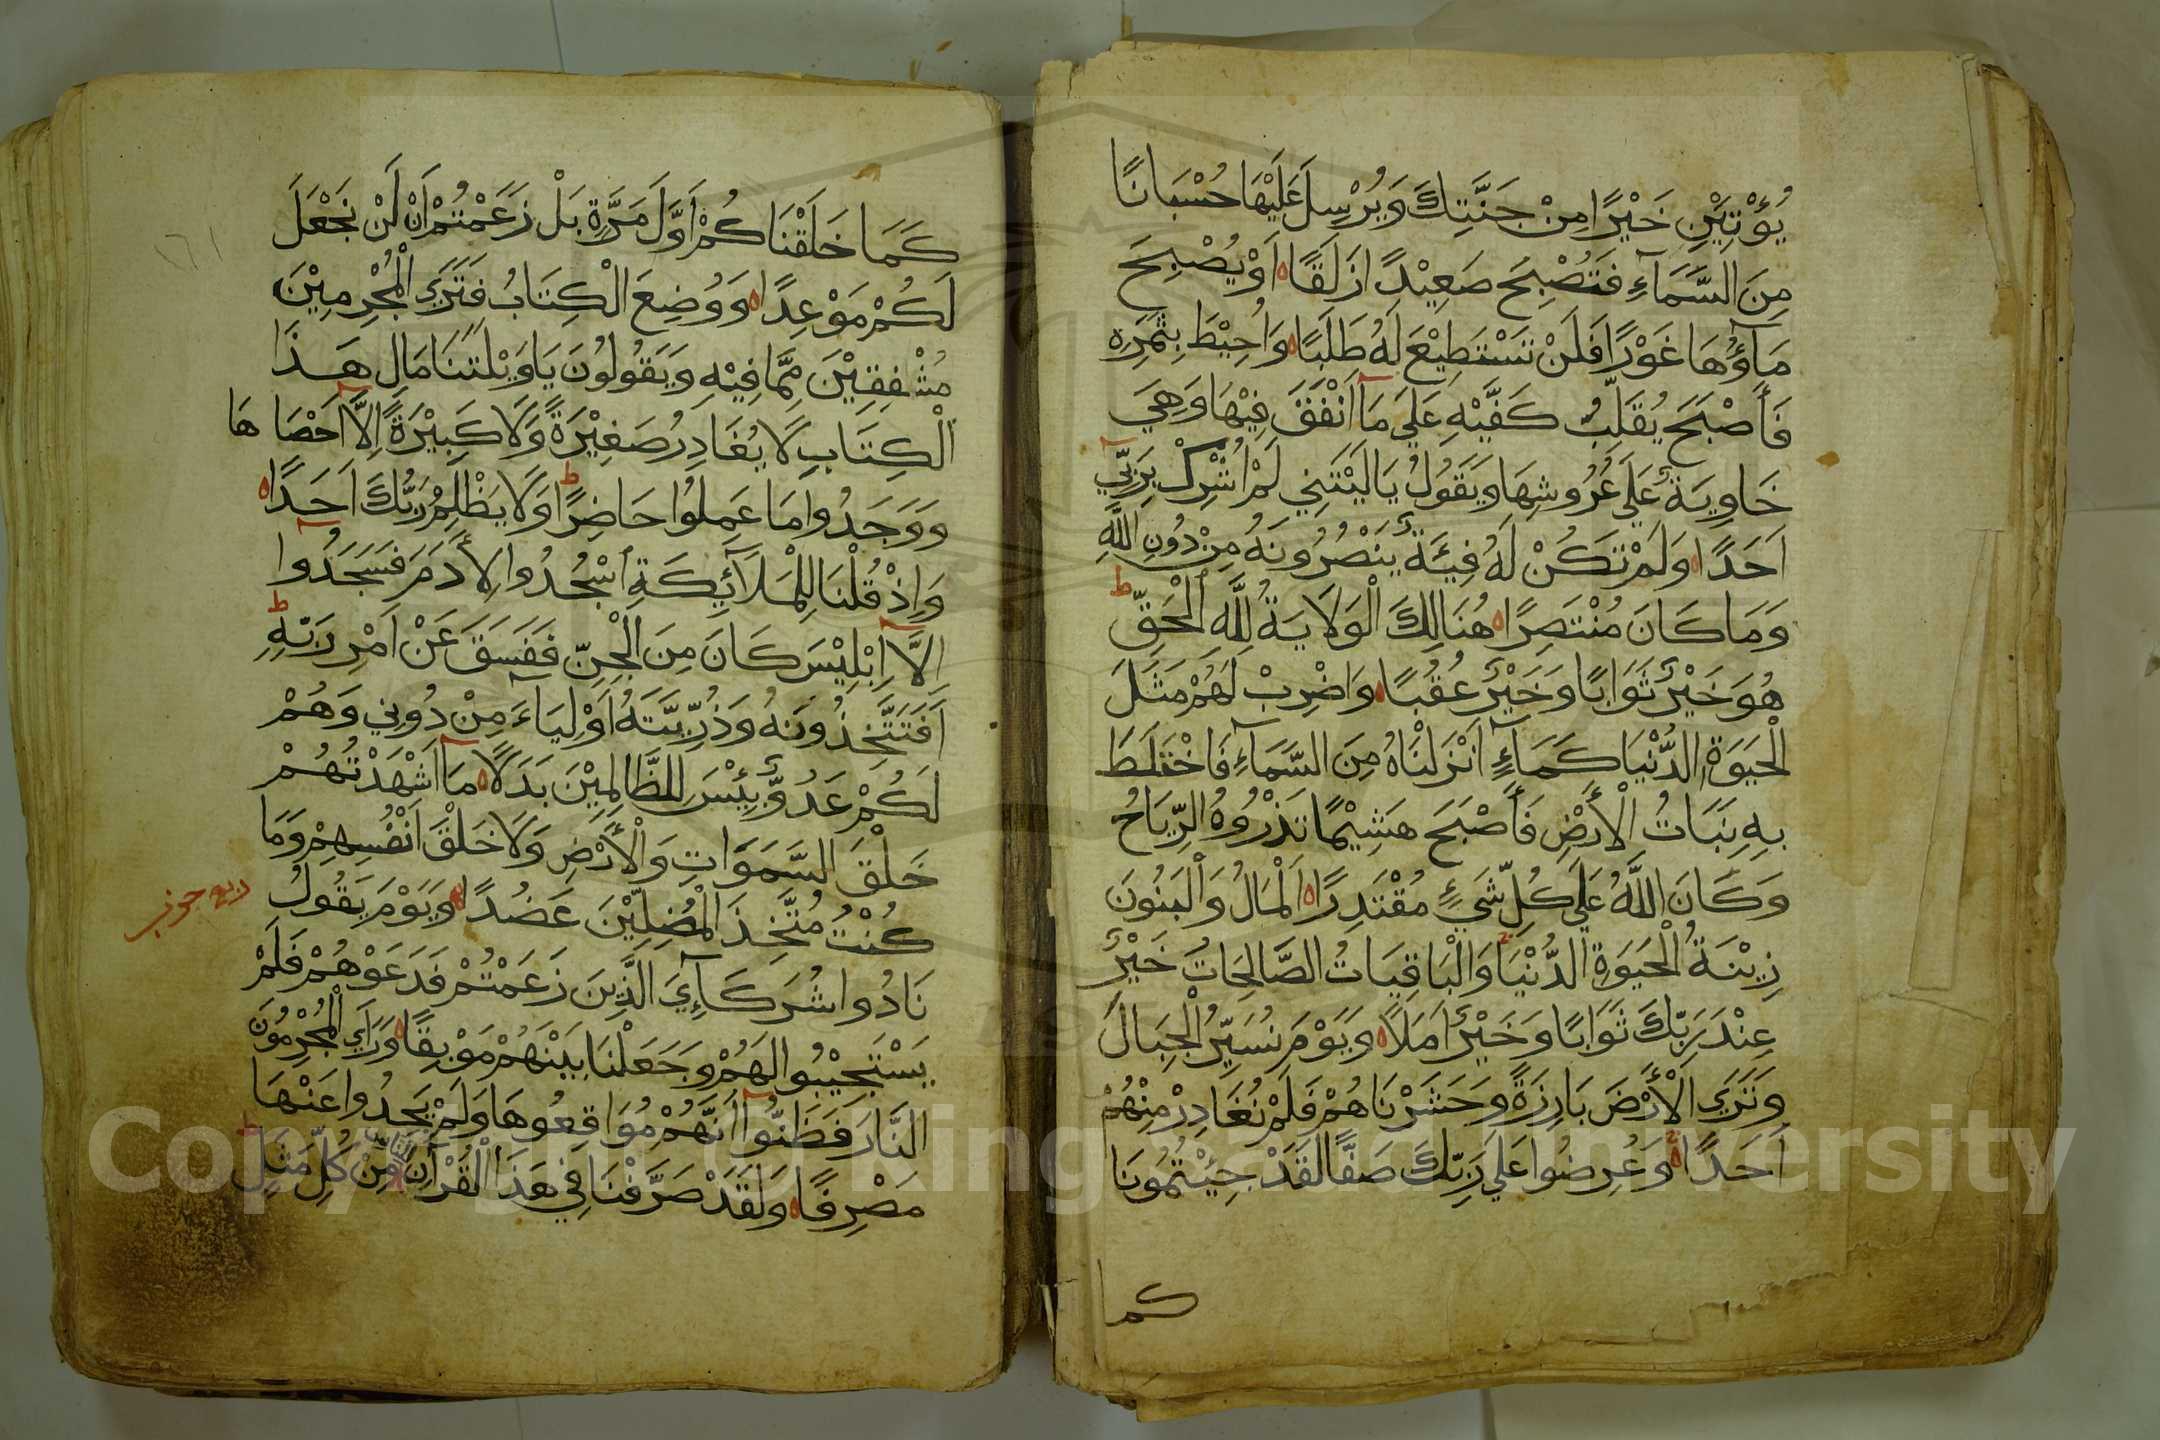 يُؤْتِيَنِ خَيْرًا مِنْ جَنَّتِكَ وَيُرْسِلَ عَلَيْهَا حُسْبَانًا
مِنَ السَّمَآءِ فَتُصْبِحَ صَعِيْدًا زَلَقًا ە اَوْ يُصْبِحَ
مَآؤُهَا غَوْرًا فَلَنْ تَسْتَطِيْعَ لَهُ طَلَبًا ە وَاُحِيْطَ بِثَمَرِهِ
فَأَصْبَحَ يُقَلِّبُ كَفَّيْهِ عَلَى مَآ اَنْفَقَ فِيْهَا وَهِيَ
خَاوِيَةٌ عَلَى عُرُوشِهَا وَيَقُولُ يَا لَيْتَنِي لَمْ اُشْرِكْ بِرَبِّي
اَحَدًا ە وَلَمْ تَكُنْ لَهُ فِئَةٌ يَنْصُرُونَهُ مِنْ دُونِ اللَّهِ
وَمَا كَانَ مُنْتَصِرًا ە هُنَالِكَ الْوَلَايَةُ لِلَّهِ الْحَقِّ ط
هُوَ خَيْرٌ ثَوَابًا وَخَيْرٌ عُقُبًا ە وَاضْرِبْ لَهُمْ مَثَلَ
الْحَيَوةِ الدُّنْيَا كَمَآءٍ اَنْزَلْنَاهُ مِنَ السَّمَآءِ فَاخْتَلَطَ
بِهِ نَبَاتُ الْأَرْضِ فَأَصْبَحَ هَشِيْمًا تَذْرُوهُ الرِّيَاحُ
وَكَانَ اللَّهُ عَلَى كُلِّ شَيْءٍ مُقْتَدِرًا ە اَلْمَالُ وَالْبَنُونَ
زِيْنَةُ الْحَيَوةِ الدُّنْيَا وَالْبَاقِيَاتُ الصَّالِحَاتُ خَيْرٌ
عِنْدَ رَبِّكَ ثَوَابًا وَخَيْرٌ اَمَلًا ە وَيَوْمَ نُسَيِّرُ الْجِبَالَ
وَتَرَى الْأَرْضَ بَارِزَةً وَحَشَرْنَاهُمْ فَلَمْ نُغَادِرْ مِنْهُمْ
اَحَدًا ە وَعُرِضُوا عَلَى رَبِّكَ صَفًّا لَقَدْ جِئْتُمُونَا
كما
كَمَا خَلَقْنَاكُمْ اَوَّلَ مَرَّةٍ بَلْ زَعَمْتُمْ اَنْ لَنْ نَجْعَلَ
لَكُمْ مَوْعِدًا ە وَوُضِعَ الْكِتَابُ فَتَرَى الْمُجْرِمِيْنَ
مُشْفِقِيْنَ مِمَّا فِيْهِ وَيَقُولُونَ يَا وَيْلَتَنَا مَالِ هَذَا
الْكِتَابِ لَا يُغَادِرُ صَغِيْرَةً وَلَا كَبِيْرَةً اِلَّا اَحْصَاهَا
وَوَجَدُوا مَا عَمِلُوا حَاضِرًا ط وَلَا يَظْلِمُ رَبُّكَ اَحَدًا ە
وَاِذْ قُلْنَا لِلْمَلَآئِكَةِ اسْجُدُوا لِأَدَمَ فَسَجَدُوا
اِلَّا اِبْلِيْسَ كَانَ مِنَ الْجِنِّ فَفَسَقَ عَنْ اَمْرِ رَبِّهِ ط
اَفَتَتَّخِذُونَهُ وَذُرِّيَّتَهُ اَوْلِيَآءَ مِنْ دُونِي وَهُمْ
لَكُمْ عَدُوٌّ بِئْسَ لِلظَّالِمِيْنَ بَدَلًا ە مَا اَشْهَدْتُهُمْ
خَلْقَ السَّمَوَاتِ وَالْأَرْضِ وَلَا خَلْقَ اَنْفُسِهِمْ وَمَا
كُنْتُ مُتَّخِذَ الْمُضِلِّيْنَ عَضُدًا ە وَيَوْمَ يَقُولُ
نَادُوا شُرَكَآءِيَ الَّذِينَ زَعَمْتُمْ فَدَعَوْهُمْ فَلَمْ
يَسْتَجِيْبُوا لَهُمْ وَجَعَلْنَا بَيْنَهُمْ مَوْبِقًا ە وَرَأَى الْمُجْرِمُونَ
النَّارَ فَظَنُّوا اَنَّهُمْ مُوَاقِعُوهَا وَلَمْ يَجِدُوا عَنْهَا
مَصْرِفًا ە وَلَقَدْ صَرَّفْنَا فِي هَذَا الْقُرْآنِ لِلنَّاسِ مِنْ كُلِّ مَثَلٍ ط
ربع حزب
Copyright © King Saud University